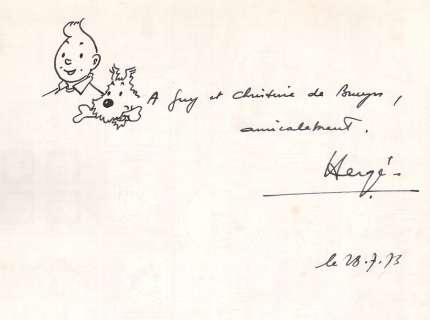 A Guy et Christine de Bruyn,
amicalement.
Hergé
le 28.7.73